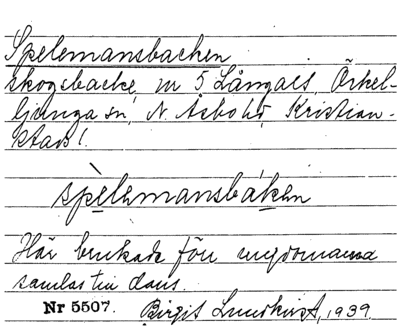 Spelemansbacken
skogsbacke, m 5 Långals, Örkel-
ljunga sn, N. Åsbo hd, Kristian-
stads l.
spèlemansbáken
Här brukade förr ungdomarna
samlas till dans.
Nr 5507. Birgit Lundkvist, 1939.